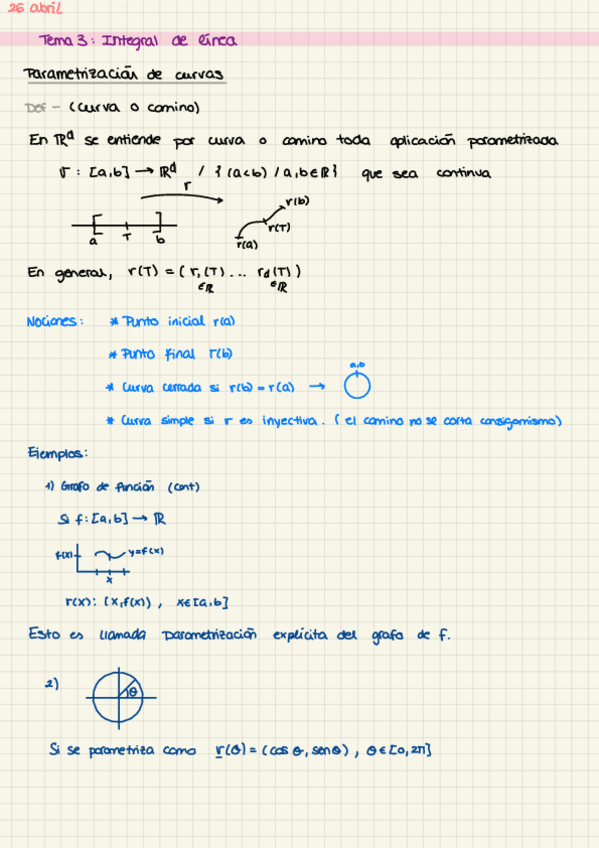 26 abril
Tema 3: Integral de línea
Parametrización de curvas
Def - (curva o camino)
En ℝᵈ se entiende por curva o camino toda aplicación parametrizada
r : [a,b] → ℝᵈ / { (a<b) / a,b ∈ ℝ } que sea continua
r
r(b)
r(T)
a T b
r(a)
En general, r(T) = ( r₁(T) ... r_d(T) )
∈ℝ ∈ℝ
Nociones: * Punto inicial r(a)
* Punto final r(b)
a,b
* Curva cerrada si r(b) = r(a) →
* Curva simple si r es inyectiva. ( el camino no se corta consigomismo)
Ejemplos:
1) Grafo de función (cont)
Si f: [a,b] → ℝ
f(x) y=f(x)
x
r(x): (x,f(x)) , x∈[a,b]
Esto es llamada parametrización explícita del grafo de f.
2)
θ
Si se parametriza como r(θ) = (cos θ, sen θ) , θ ∈ [0,2π]